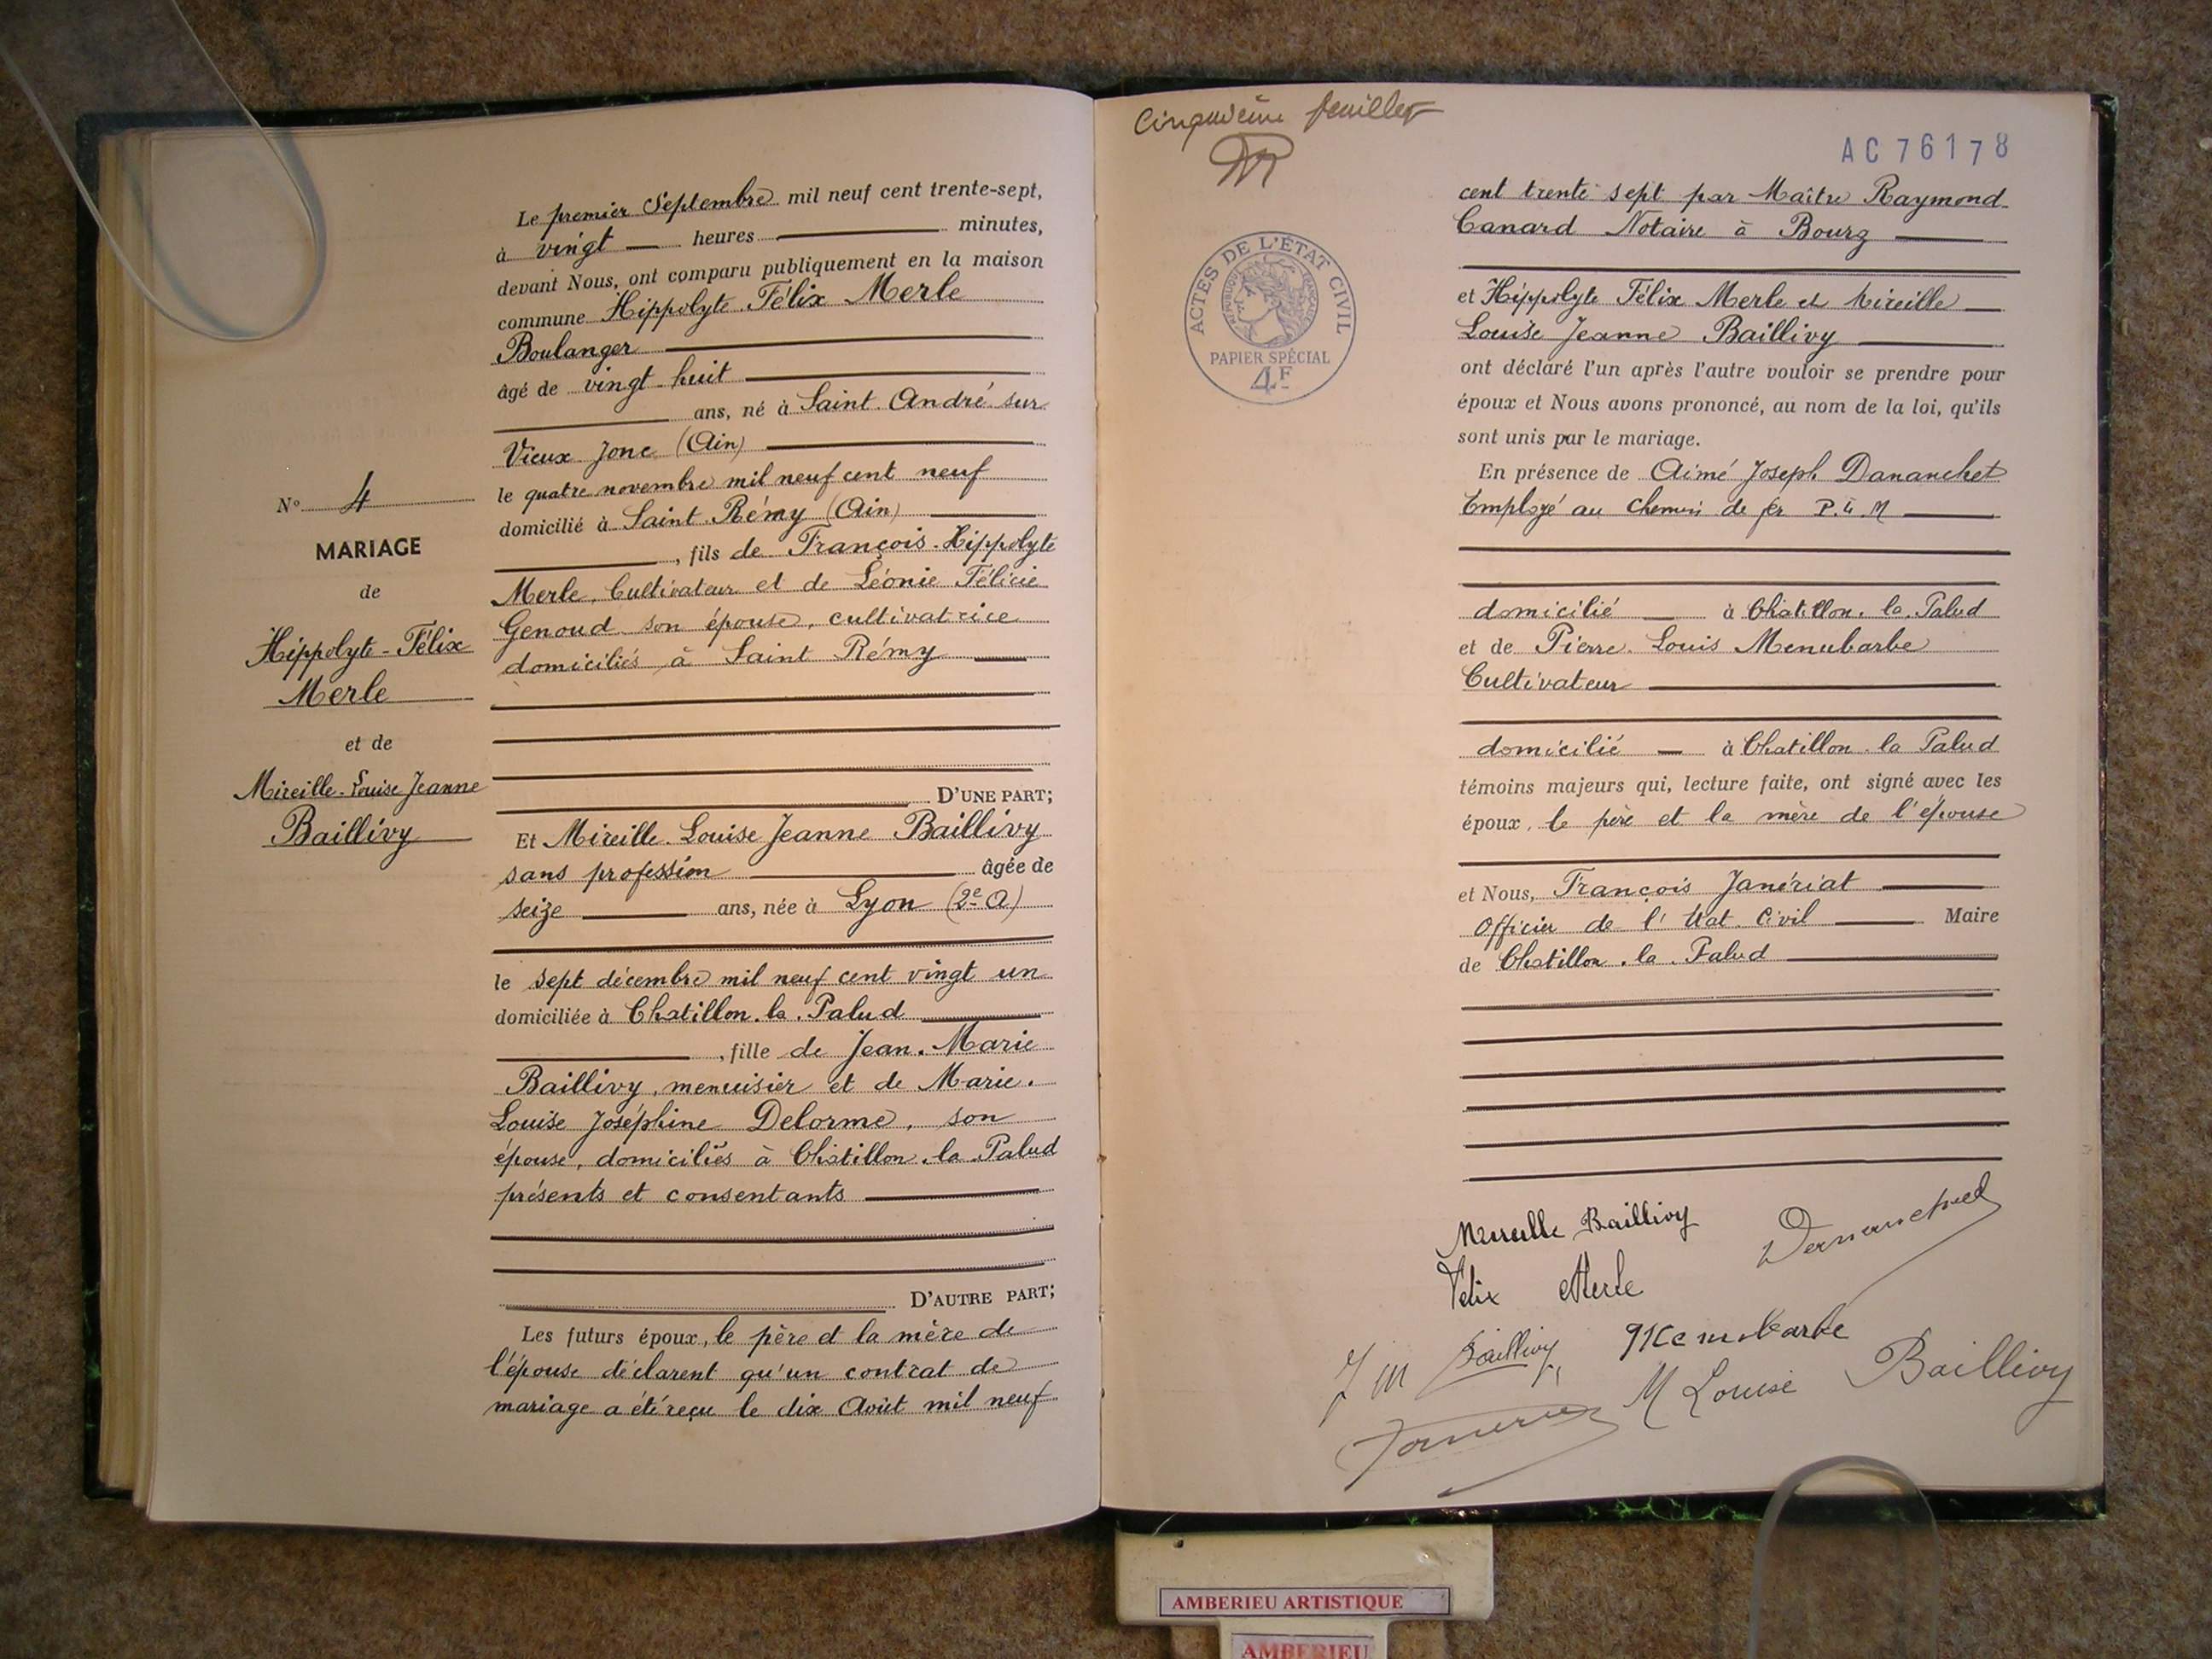 N° 4
MARIAGE
de
Hippolyte-Félix
Merle
et de
Mireille-Louise Jeanne
Baillivy
Le premier Septembre mil neuf cent trente-sept,
à vingt heures minutes,
devant Nous, ont comparu publiquement en la maison
commune Hippolyte Félix Merle
Boulanger
âgé de vingt-huit
ans, né à Saint André sur
Vieux Jonc (Ain)
le quatre novembre mil neuf cent neuf
domicilié à Saint Rémy (Ain)
, fils de François-Hippolyte
Merle, Cultivateur et de Léonie Félicie
Genoud son épouse, cultivatrice
domiciliés à Saint Rémy
D'UNE PART;
Et Mireille Louise Jeanne Baillivy
sans profession âgée de
seize ans, née à Lyon (2e A)
le sept décembre mil neuf cent vingt un
domiciliée à Chatillon.la.Palud
, fille de Jean.Marie
Baillivy, menuisier et de Marie.
Louise Joséphine Delorme, son
épouse, domiciliés à Chatillon.la.Palud
présents et consentants
D'AUTRE PART;
Les futurs époux, le père et la mère de
l'épouse déclarent qu'un contrat de
mariage a été reçu le dix Août mil neuf
Cinquième feuillet
AC 76178
ACTES DE L'ÉTAT CIVIL
RÉPUBLIQUE FRANÇAISE
PAPIER SPÉCIAL
4F
cent trente sept par Maître Raymond
Canard Notaire à Bourg
et Hippolyte Félix Merle et Mireille
Louise Jeanne Baillivy
ont déclaré l'un après l'autre vouloir se prendre pour
époux et Nous avons prononcé, au nom de la loi, qu'ils
sont unis par le mariage.
En présence de Aimé Joseph Dananchet
Employé au Chemin de fer P.L.M
domicilié à Chatillon.la.Palud
et de Pierre Louis Menubarbe
Cultivateur
domicilié à Chatillon la Palud
témoins majeurs qui, lecture faite, ont signé avec les
époux, le père et la mère de l'épouse
et Nous, François Janériat
Officier de l'Etat Civil Maire
de Chatillon.la.Palud
Mireille Baillivy
Dananchet
Félix Merle
J M Baillivy
Menubarbe
M Louise Baillivy
AMBERIEU ARTISTIQUE
AMBERIEU